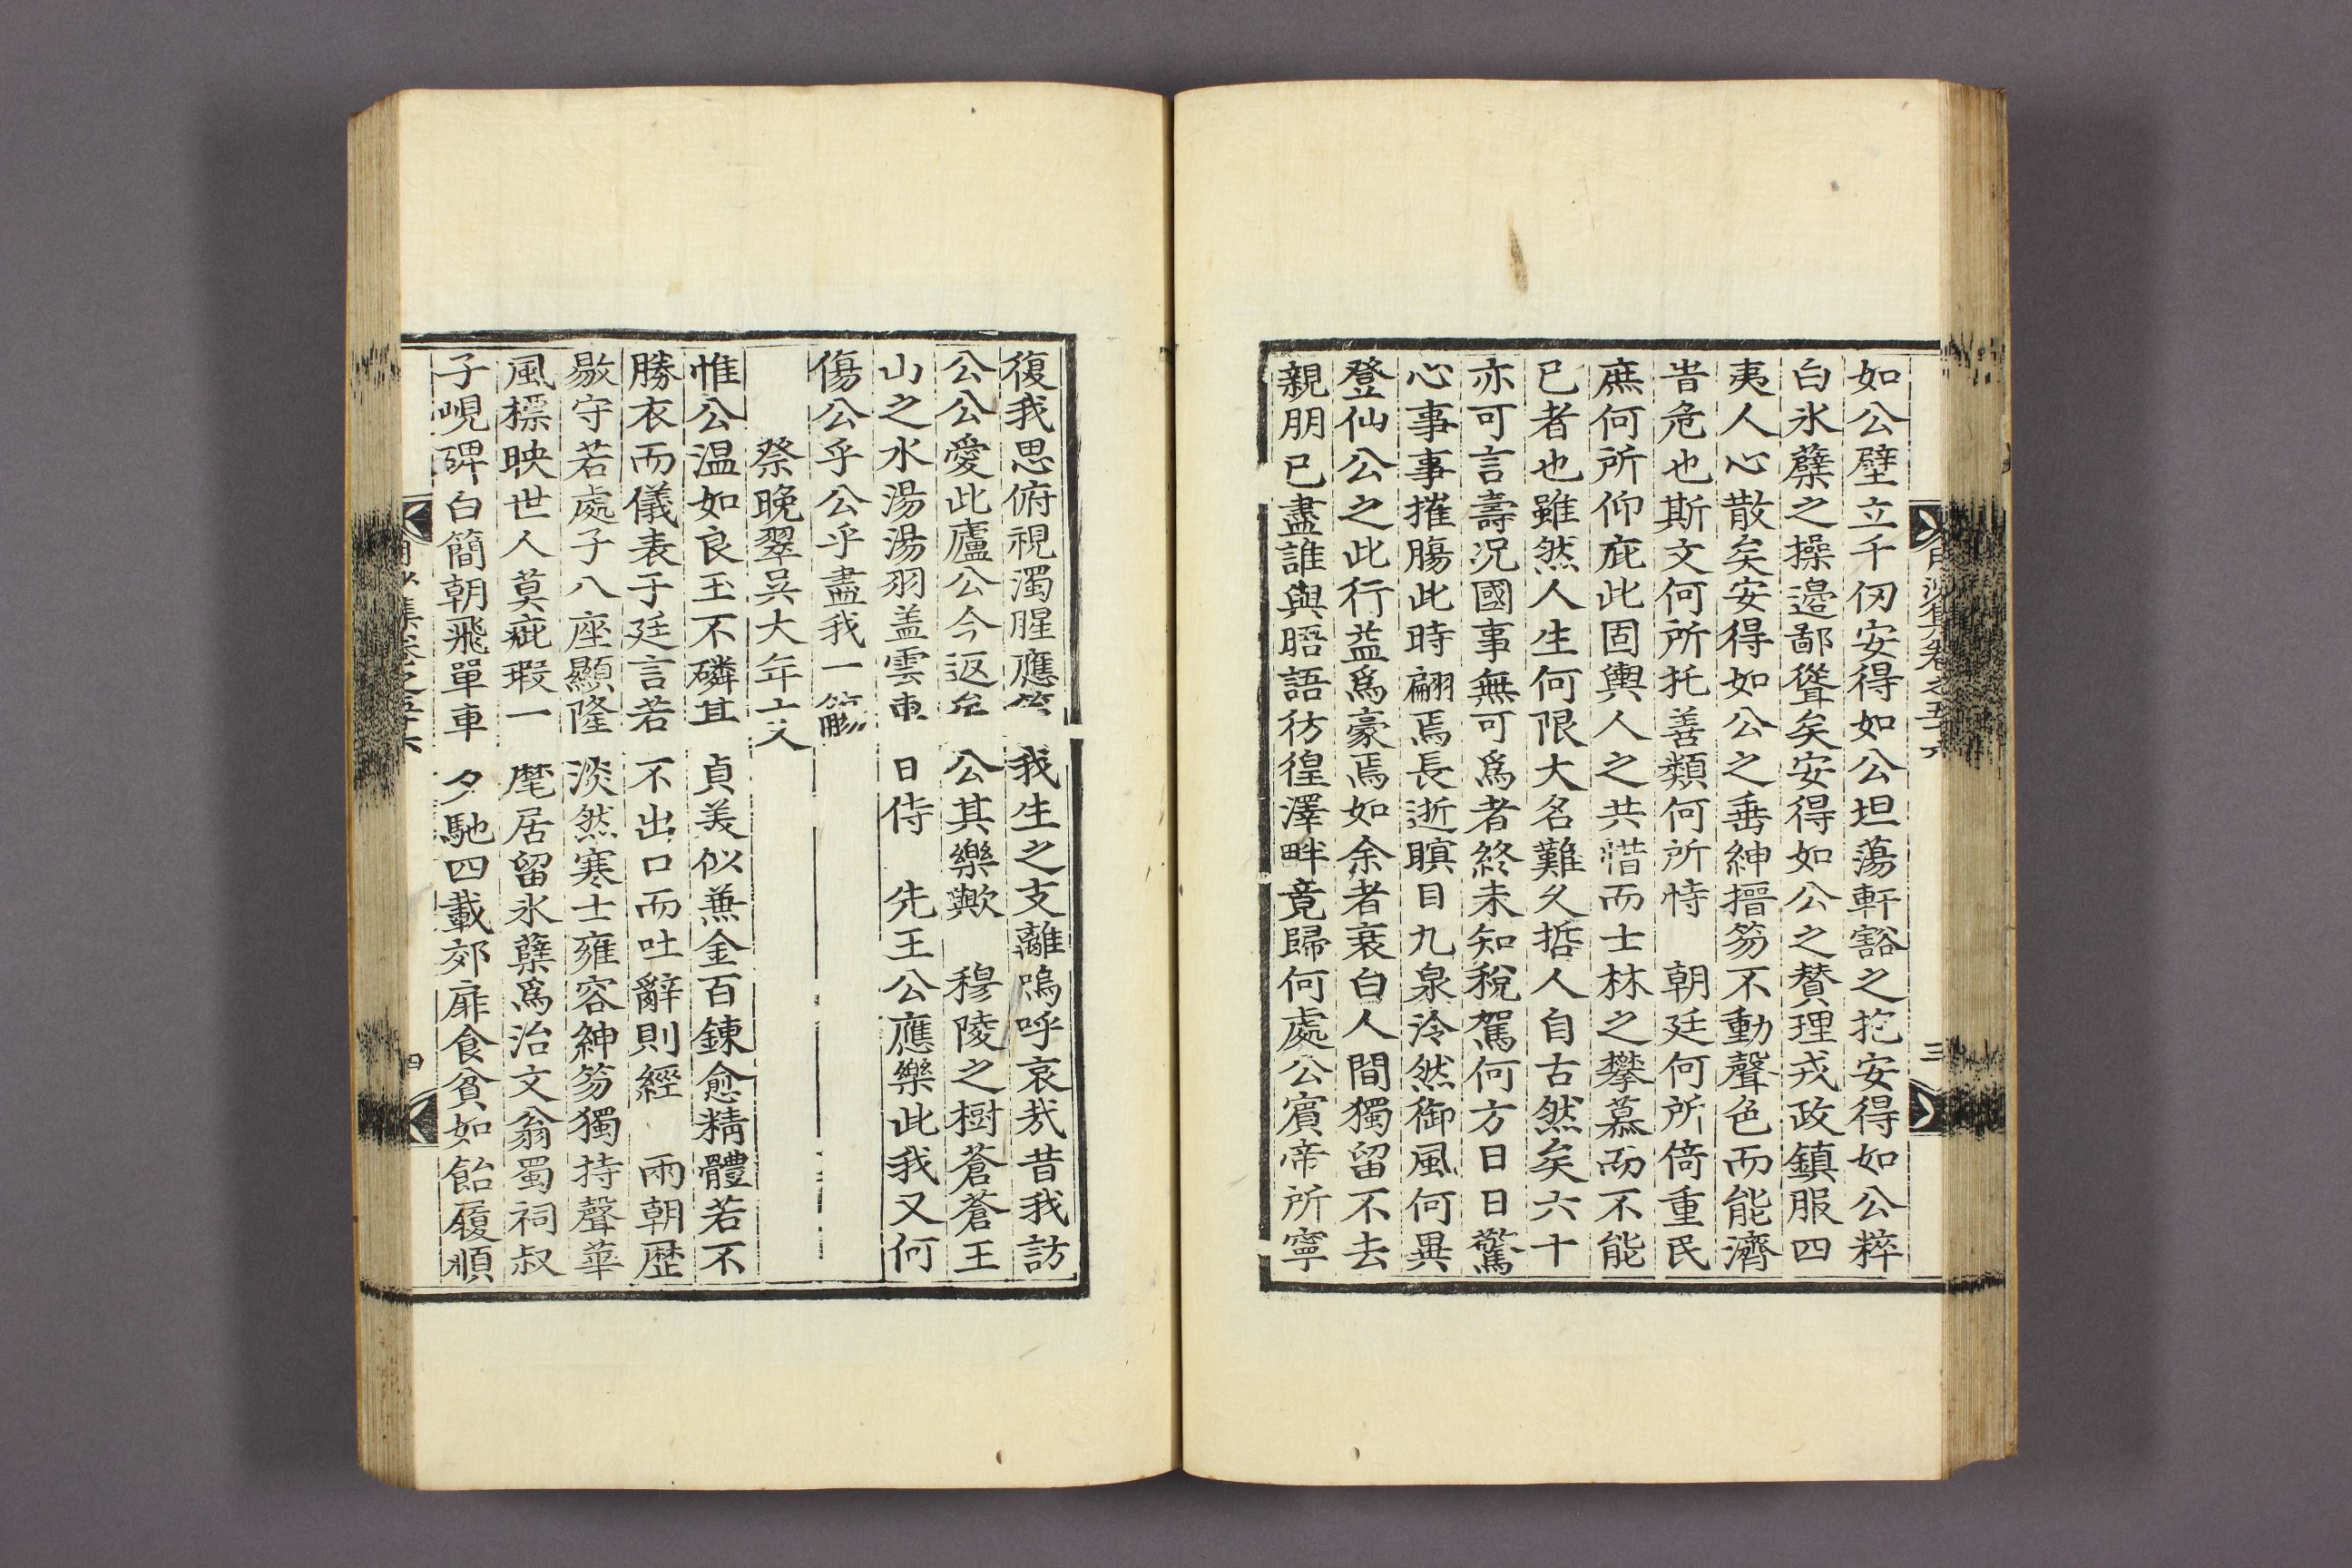 如公壁立千仞安得如公坦蕩軒豁之抱安得如公粹
白氷蘗之操邉鄙聳矣安得如公之賛理戎政鎮服四
夷人心散矣安得如公之垂紳搢笏不動聲色而能濟
旹危也斯文何所托善類何所恃 朝廷何所倚重民
庶何所仰庇此固輿人之共惜而士林之攀慕而不能
已者也雖然人生何限大名難久哲人自古然矣六十
亦可言壽况國事無可爲者終未知稅駕何方日日驚
心事事摧膓此時翩焉長逝瞑目九泉泠然御風何異
登仙公之此行益爲豪焉如余者衰白人間獨留不去
親朋已盡誰與晤語彷徨澤畔竟歸何處公賓帝所寧
三
復我思俯視濁腥應 我生之支離嗚呼哀㢤昔我訪
公公愛此廬公今返 公其樂歟 穆陵之樹蒼蒼王
山之水湯湯羽盖雲車日侍 先王公應樂此我又何
傷公乎公乎盡我一觴
祭晚翠吳大年文
惟公温如良玉不磷其貞美似兼金百鍊愈精體若不
勝衣而儀表于廷言若不出口而吐辭則經 兩朝歷
敭守若處子八座顯隆淡然寒士雍容紳笏獨持聲華
風標映世人莫疵瑕一麾居留氷蘗爲治文翁蜀祠叔
子峴碑白簡朝飛單車夕馳四載郊扉食貧如飴履順
集卷之五十六
四